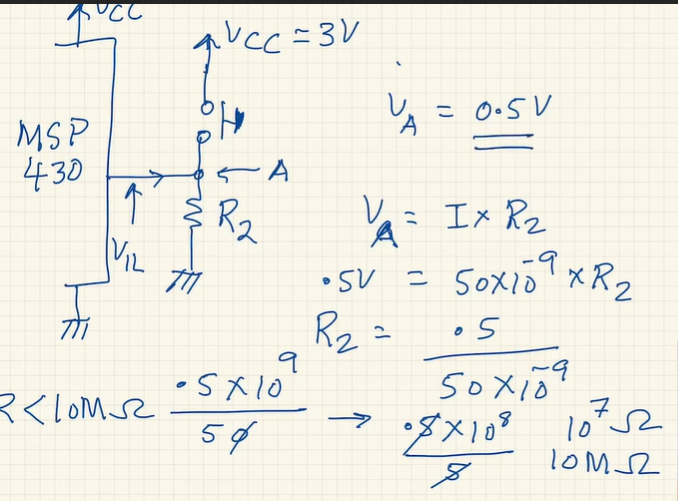 VCC
VCC = 3V
MSP
430
A
R2
VIL
VA = 0.5V
VA = I x R2
.5V = 50x10^-9 x R2
R2 = .5 / 50x10^-9
R<10MΩ .5x10^9 / 50 → .5x10^8 / 5
10^7 Ω
10MΩ